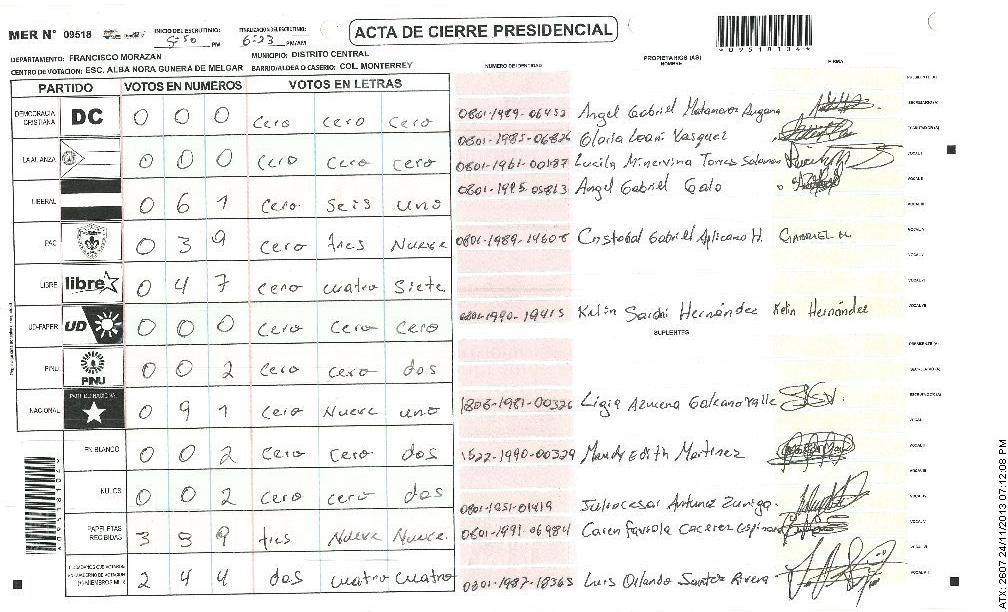 MER N° 09518
INICIO DEL ESCRUTINIO: 5:50 PM
FINALIZACION DEL ESCRUTINIO: 6:23 PM/AM
ACTA DE CIERRE PRESIDENCIAL
*09518134*
DEPARTAMENTO: FRANCISCO MORAZAN MUNICIPIO: DISTRITO CENTRAL
CENTRO DE VOTACION: ESC. ALBA NORA GUNERA DE MELGAR BARRIO/ALDEA O CASERIO: COL. MONTERREY
NUMERO DE IDENTIDAD PROPIETARIOS (AS) NOMBRE FIRMA
PARTIDO VOTOS EN NUMEROS VOTOS EN LETRAS
DEMOCRACIA CRISTIANA DC 0 0 0 cero cero cero
LA ALIANZA 0 0 0 cero cero cero
LIBERAL 0 6 1 cero seis uno
PAC 0 3 9 cero tres Nueve
LIBRE libre 0 4 7 cero cuatro siete
UD-FAPER UD 0 0 0 cero cero cero
PINU PINU 0 0 2 cero cero dos
NACIONAL PARTIDO NACIONAL 0 9 1 cero Nueve uno
EN BLANCO 0 0 2 cero cero dos
NULOS 0 0 2 cero cero dos
PAPELETAS RECIBIDAS 3 9 9 tres Nueve Nueve
CIUDADANOS QUE VOTARON EN CUADERNO DE VOTACION (+) MIEMBROS MER 2 4 4 dos cuatro cuatro
0801-1989-06452 Angel Gabriel
0801-1985-06826 Gloria Vasquez
0801-1961-00187 Lucila Minervina Torres
0801-1995-05813 Angel Gabriel Galo
0801-1989-14608 Cristobal Gabriel Aplicano H. GABRIEL H
0801-1990-19415 Kelin Sarahi Hernández Kelin Hernández
SUPLENTES
1806-1981-00326 Ligia Azucena
1522-1990-00329 Mandy Edith Martinez
0801-1951-01419 Julio cesar Antunez Zuniga
0801-1991-06984 Caren Caceres
0801-1987-18365 Luis Orlando Santos Rivera
PRESIDENTE (A)
SECRETARIO (A)
ESCRUTADOR (A)
VOCAL I
VOCAL II
VOCAL III
VOCAL IV
VOCAL V
VOCAL VI
VOCAL VII
PRESIDENTE (A)
SECRETARIO (A)
ESCRUTADOR (A)
VOCAL I
VOCAL II
VOCAL III
VOCAL IV
VOCAL V
VOCAL VI
VOCAL VII
ATX: 2607 24/11/2013 07:12:08 PM